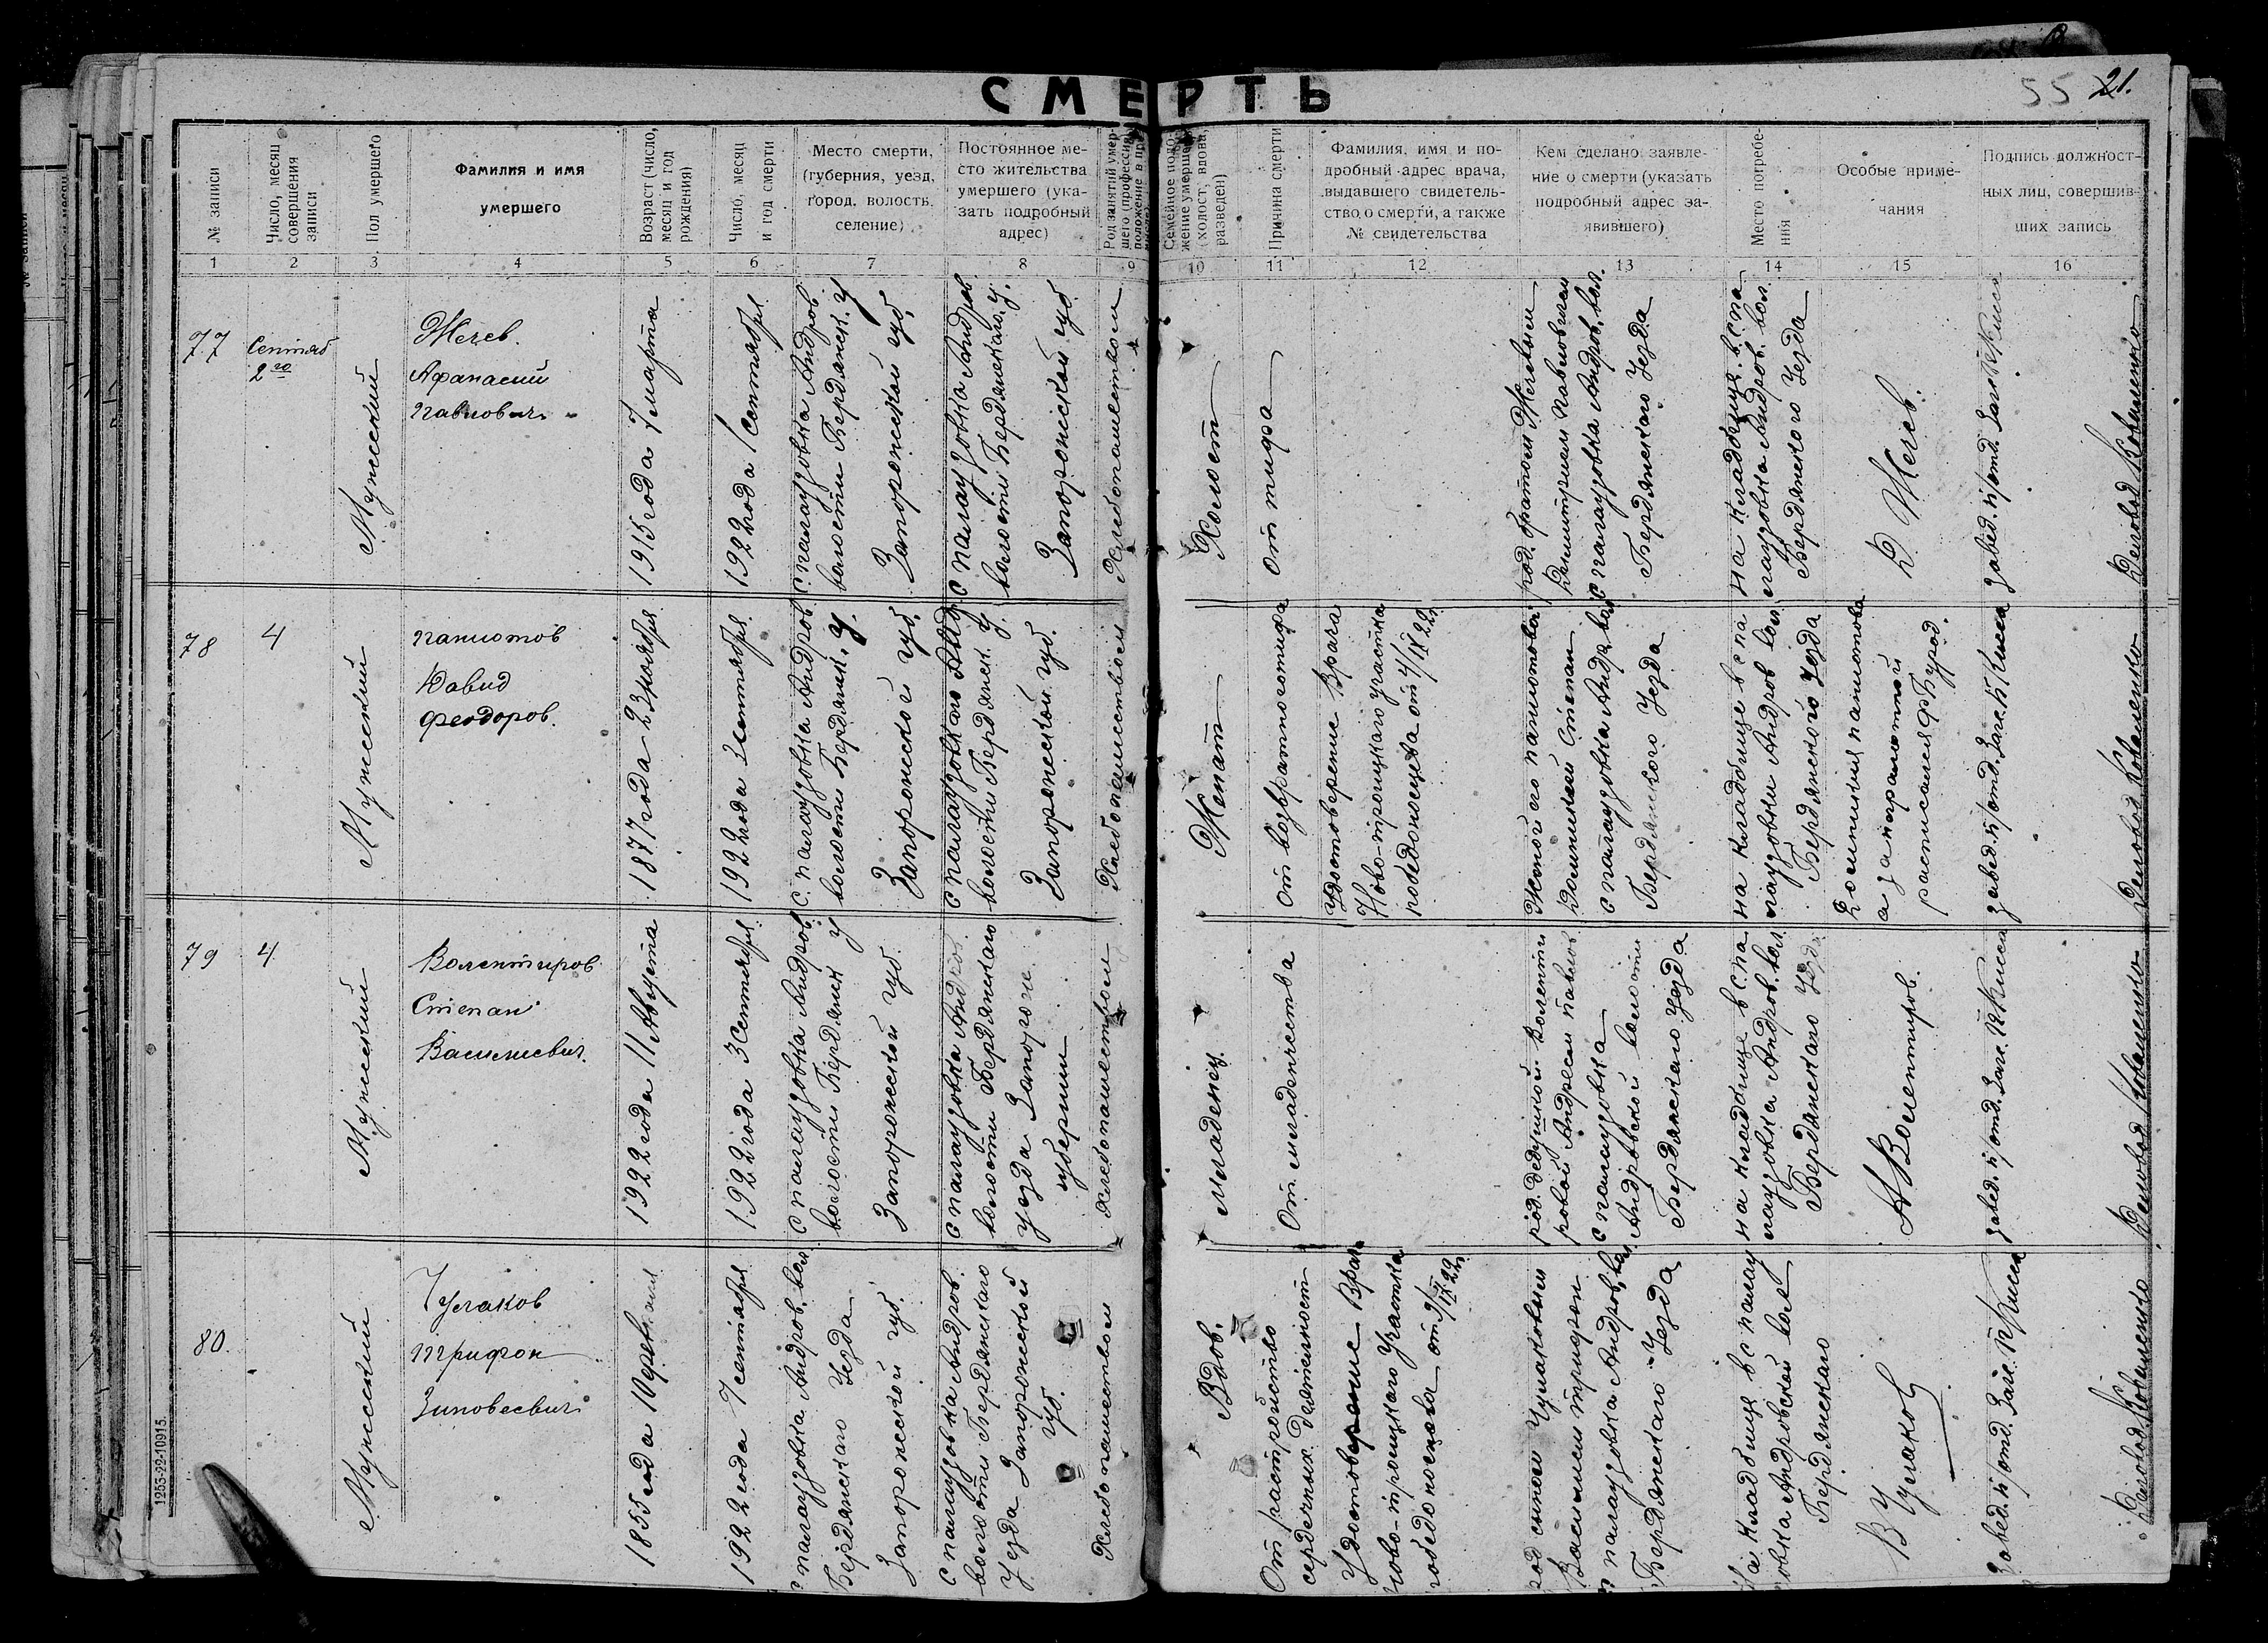 СМЕРТЬ
55 21.
№ записи
Число, месяц
совершения
записи
Пол умершего
Фамилия и имя
умершего
Возраст (число,
месяц и год
рождения)
Число, месяц
и год смерти
Место смерти,
(губерния, уезд,
город, волость,
селение)
Постоянное ме-
сто жительства
умершего (ука-
зать подробный
адрес)
Род занятий умер-
шего (профессия,
положение в
Семейное поло-
жение умершего
(холост, вдова,
разведен)
Причина смерти
Фамилия, имя и по-
дробный адрес врача,
выдавшего свидетель-
ство о смерти, а также
№ свидетельства
Кем сделано заявле-
ние о смерти (указать
подробный адрес за-
явившего)
Место погребе-
ния
Особые приме-
чания
Подпись должност-
ных лиц, совершив-
ших запись
1 2 3 4 5 6 7 8 9 10 11 12 13 14 15 16
77
Сентяб
2го
Мужеский
Жечев.
Афанасий
Павлович
1915 года 7 марта
1922 года 1 сентября
с палаузовка Андров
волости Бердянск. у
Запорожской губ.
с палаузовка Андров
волости Бердянскаго у.
Запорожской губ
Хлебопашеством
Холост
от тифа
род. братом Жечевым
Димитрием Павловичем
с палаузовка Андров. вол.
Бердянского Уезда
на кладбище в с па
лаузовка Андров. вол
Бердянского Уезда
Д Жечев.
Завед. п/отд. Загс
Деловод Коваленко
78
4
Мужеский
Паниотов
Давид
Феодоров.
1877 года 23 ноября
1922 года 3 сентября
с. палаузовка Андров
волости Бердянск. у.
Запорожской губ
с палаузовкаго Андр.
волости Бердянск. у.
Запорожской губ.
Хлебопашеством
Женат
от возвратного тифа
Удостоверение Врача
Ново-троицкаго участка
победоносцева от 4/IX 22г
Женой его паниотовой
с палаузовка Андр вол
Бердянского Уезда
на кладбище в с па
лаузовки Андров вол.
Бердянского Уезда
паниотова
а за неграмотной
расписался
Завед. п/отд. Загс.
Деловод Коваленко
79
4
Мужеский
Волентиров
Степан
Василиевич.
1922 года 11 Августа
1922 года 3 Сентября
с палаузовка Андров
волости Бердянск у
Запорожской губ.
с палаузовка Андров.
волости Бердянскаго
уезда Запорож.
губернии
Хлебопашеством
младенец
От младенчества
род. дедушкой Воленти
ровой Андреем павлов
с палаузовка
Андровской волости
Бердянскаго Уезда
на кладбище в с па
лаузовка Андров. вол
Бердянскаго Уезда
А Волентиров.
Завед. п/отд. Загс.
Деловод Коваленко
80.
Мужеский
Чулаков
Трифон
Зиновеевич
1855 года 10 февраля
1922 года 7 сентября
с палаузовка Андров. вол
Бердянскаго Уезда
Запорожской губ.
с палаузовка Андров.
волости Бердянскаго
Уезда Запорожской
губ.
Хлебопашеством
Вдов.
От растройство
сердечных деятельност
Удостоверение Врача
Ново-троицкаго Участка
победоносцева от 9/IX 22г
род сыном Чулаковым
Василием трифон
с палаузовка Андров. вол
Бердянскаго Уезда
На кладбище в с палау
зовка Андровской вол
Бердянскаго
В Чулаков
Завед. п/отд. Загс.
Деловод Коваленко
1255-22-10915.